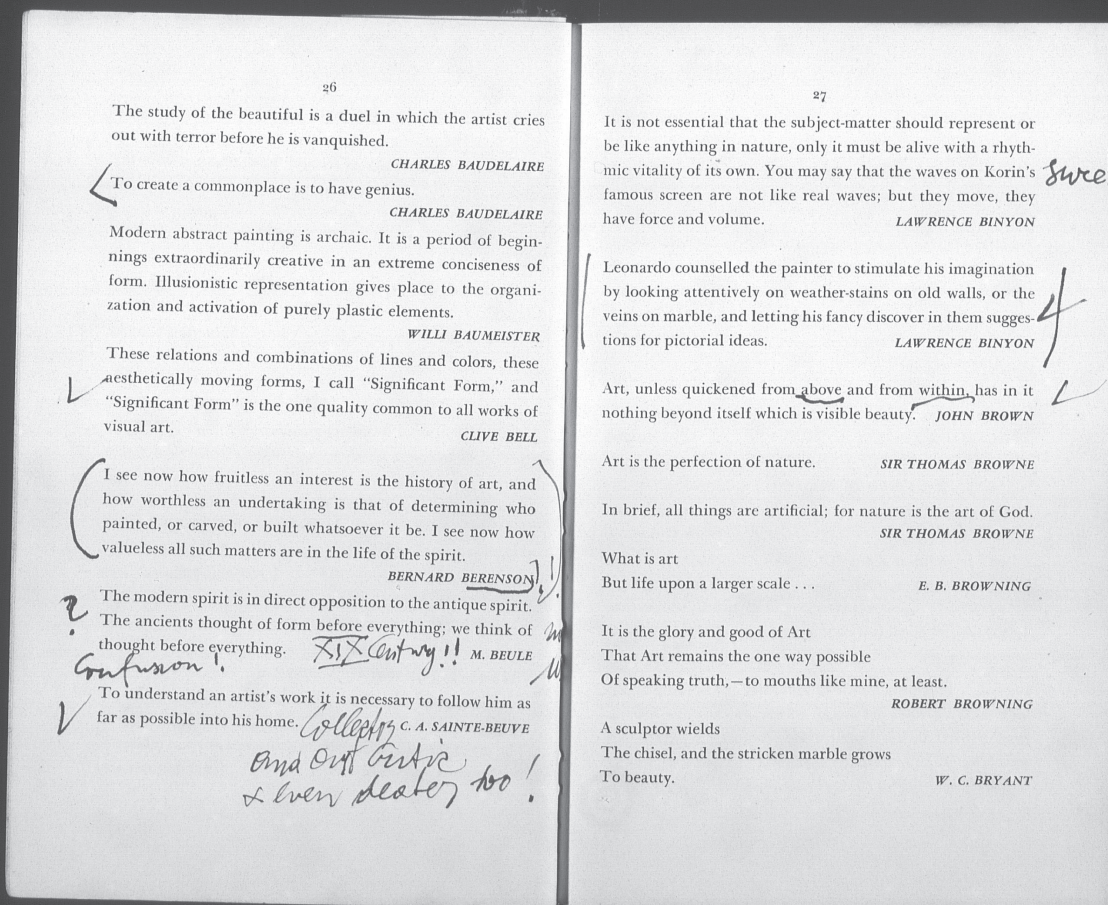 26
The study of the beautiful is a duel in which the artist cries
out with terror before he is vanquished.
CHARLES BAUDELAIRE
To create a commonplace is to have genius.
CHARLES BAUDELAIRE
Modern abstract painting is archaic. It is a period of begin-
nings extraordinarily creative in an extreme conciseness of
form. Illusionistic representation gives place to the organi-
zation and activation of purely plastic elements.
WILLI BAUMEISTER
These relations and combinations of lines and colors, these
aesthetically moving forms, I call "Significant Form," and
"Significant Form" is the one quality common to all works of
visual art.
CLIVE BELL
I see now how fruitless an interest is the history of art, and
how worthless an undertaking is that of determining who
painted, or carved, or built whatsoever it be. I see now how
valueless all such matters are in the life of the spirit.
BERNARD BERENSON !
? The modern spirit is in direct opposition to the antique spirit.
The ancients thought of form before everything; we think of
thought before everything. XIX Century!! M. BEULE
Confusion !
To understand an artist's work it is necessary to follow him as
far as possible into his home. C. A. SAINTE-BEUVE
and
& even too !
27
It is not essential that the subject-matter should represent or
be like anything in nature, only it must be alive with a rhyth-
mic vitality of its own. You may say that the waves on Korin's sure
famous screen are not like real waves; but they move, they
have force and volume. LAWRENCE BINYON
Leonardo counselled the painter to stimulate his imagination
by looking attentively on weather-stains on old walls, or the
veins on marble, and letting his fancy discover in them sugges-
tions for pictorial ideas. LAWRENCE BINYON
Art, unless quickened from above and from within, has in it
nothing beyond itself which is visible beauty. JOHN BROWN
Art is the perfection of nature. SIR THOMAS BROWNE
In brief, all things are artificial; for nature is the art of God.
SIR THOMAS BROWNE
What is art
But life upon a larger scale . . . E. B. BROWNING
It is the glory and good of Art
That Art remains the one way possible
Of speaking truth,—to mouths like mine, at least.
ROBERT BROWNING
A sculptor wields
The chisel, and the stricken marble grows
To beauty. W. C. BRYANT